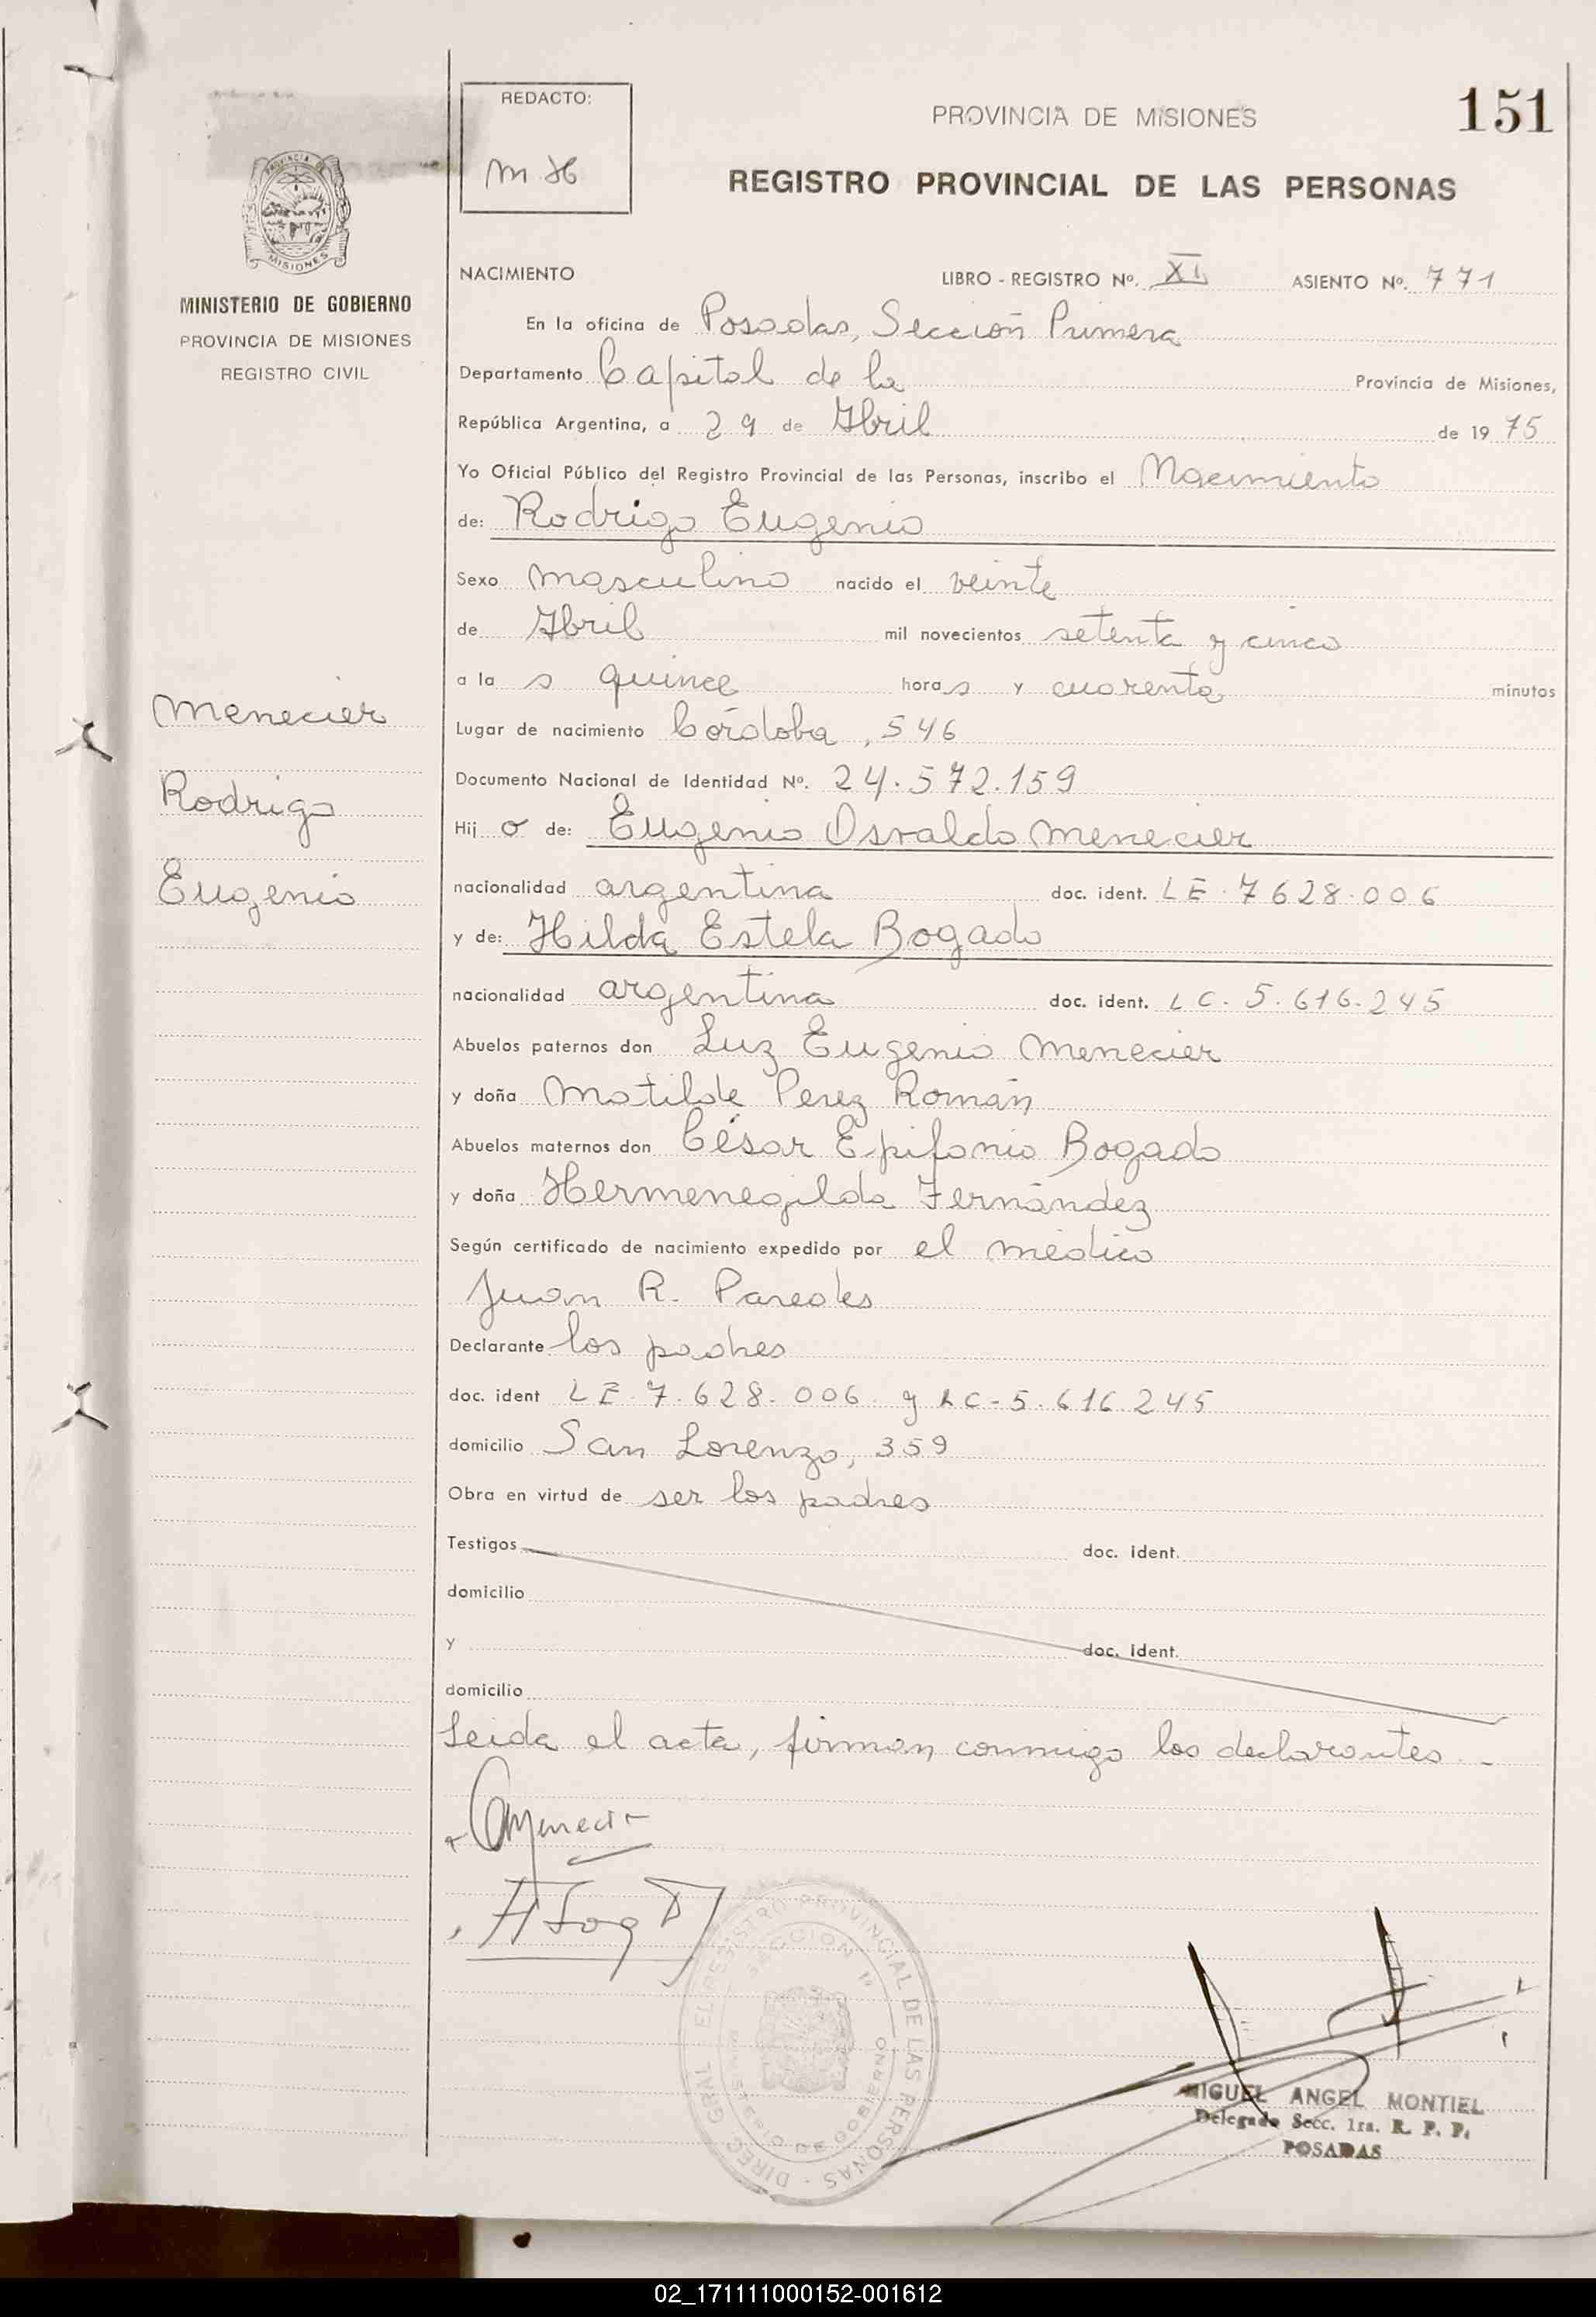 REDACTO:
M H
PROVINCIA DE MISIONES
151
REGISTRO PROVINCIAL DE LAS PERSONAS
PROVINCIA DE
MISIONES
MINISTERIO DE GOBIERNO
PROVINCIA DE MISIONES
REGISTRO CIVIL
NACIMIENTO LIBRO - REGISTRO Nº. XI ASIENTO Nº. 771
En la oficina de Posadas, Sección Primera
Departamento Capital de la Provincia de Misiones,
República Argentina, a 29 de Abril de 1975
Yo Oficial Público del Registro Provincial de las Personas, inscribo el Nacimiento
de: Rodrigo Eugenio
Sexo masculino nacido el veinte
de Abril mil novecientos setenta y cinco
a la s quince horas y cuarenta minutos
Menecier
Rodrigo
Eugenio
Lugar de nacimiento Córdoba, 546
Documento Nacional de Identidad Nº. 24.572.159
Hij o de: Eugenio Osvaldo Menecier
nacionalidad argentina doc. ident. LE. 7628.006
y de: Hilda Estela Bogado
nacionalidad argentina doc. ident. LC. 5.616.245
Abuelos paternos don Luz Eugenio Menecier
y doña Matilde Perez Román
Abuelos maternos don César Epifanio Bogado
y doña Hermenegilda Fernández
Según certificado de nacimiento expedido por el médico
Juan R. Paredes
Declarante los padres
doc. ident LE. 7.628.006 y LC-5.616.245
domicilio San Lorenzo, 359
Obra en virtud de ser los padres
Testigos doc. ident.
domicilio
y doc. ident.
domicilio
Leida el acta, firman conmigo los declarantes.-
DIREC. GRAL. EL REGISTRO PROVINCIAL DE LAS PERSONAS
SECCION 1ª
MINISTERIO DE GOBIERNO
MIGUEL ANGEL MONTIEL
Delegado Secc. 1ra. R. P. P.
POSADAS
02_171111000152-001612